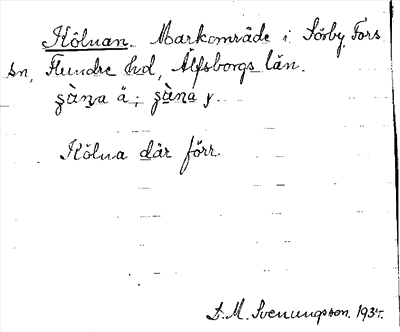 Kölnan. Markområde i Sörby, Fors
sn, Flundre hd, Älfsborgs län.
Kölna där förr.
D. M. Svenungsson. 1934.